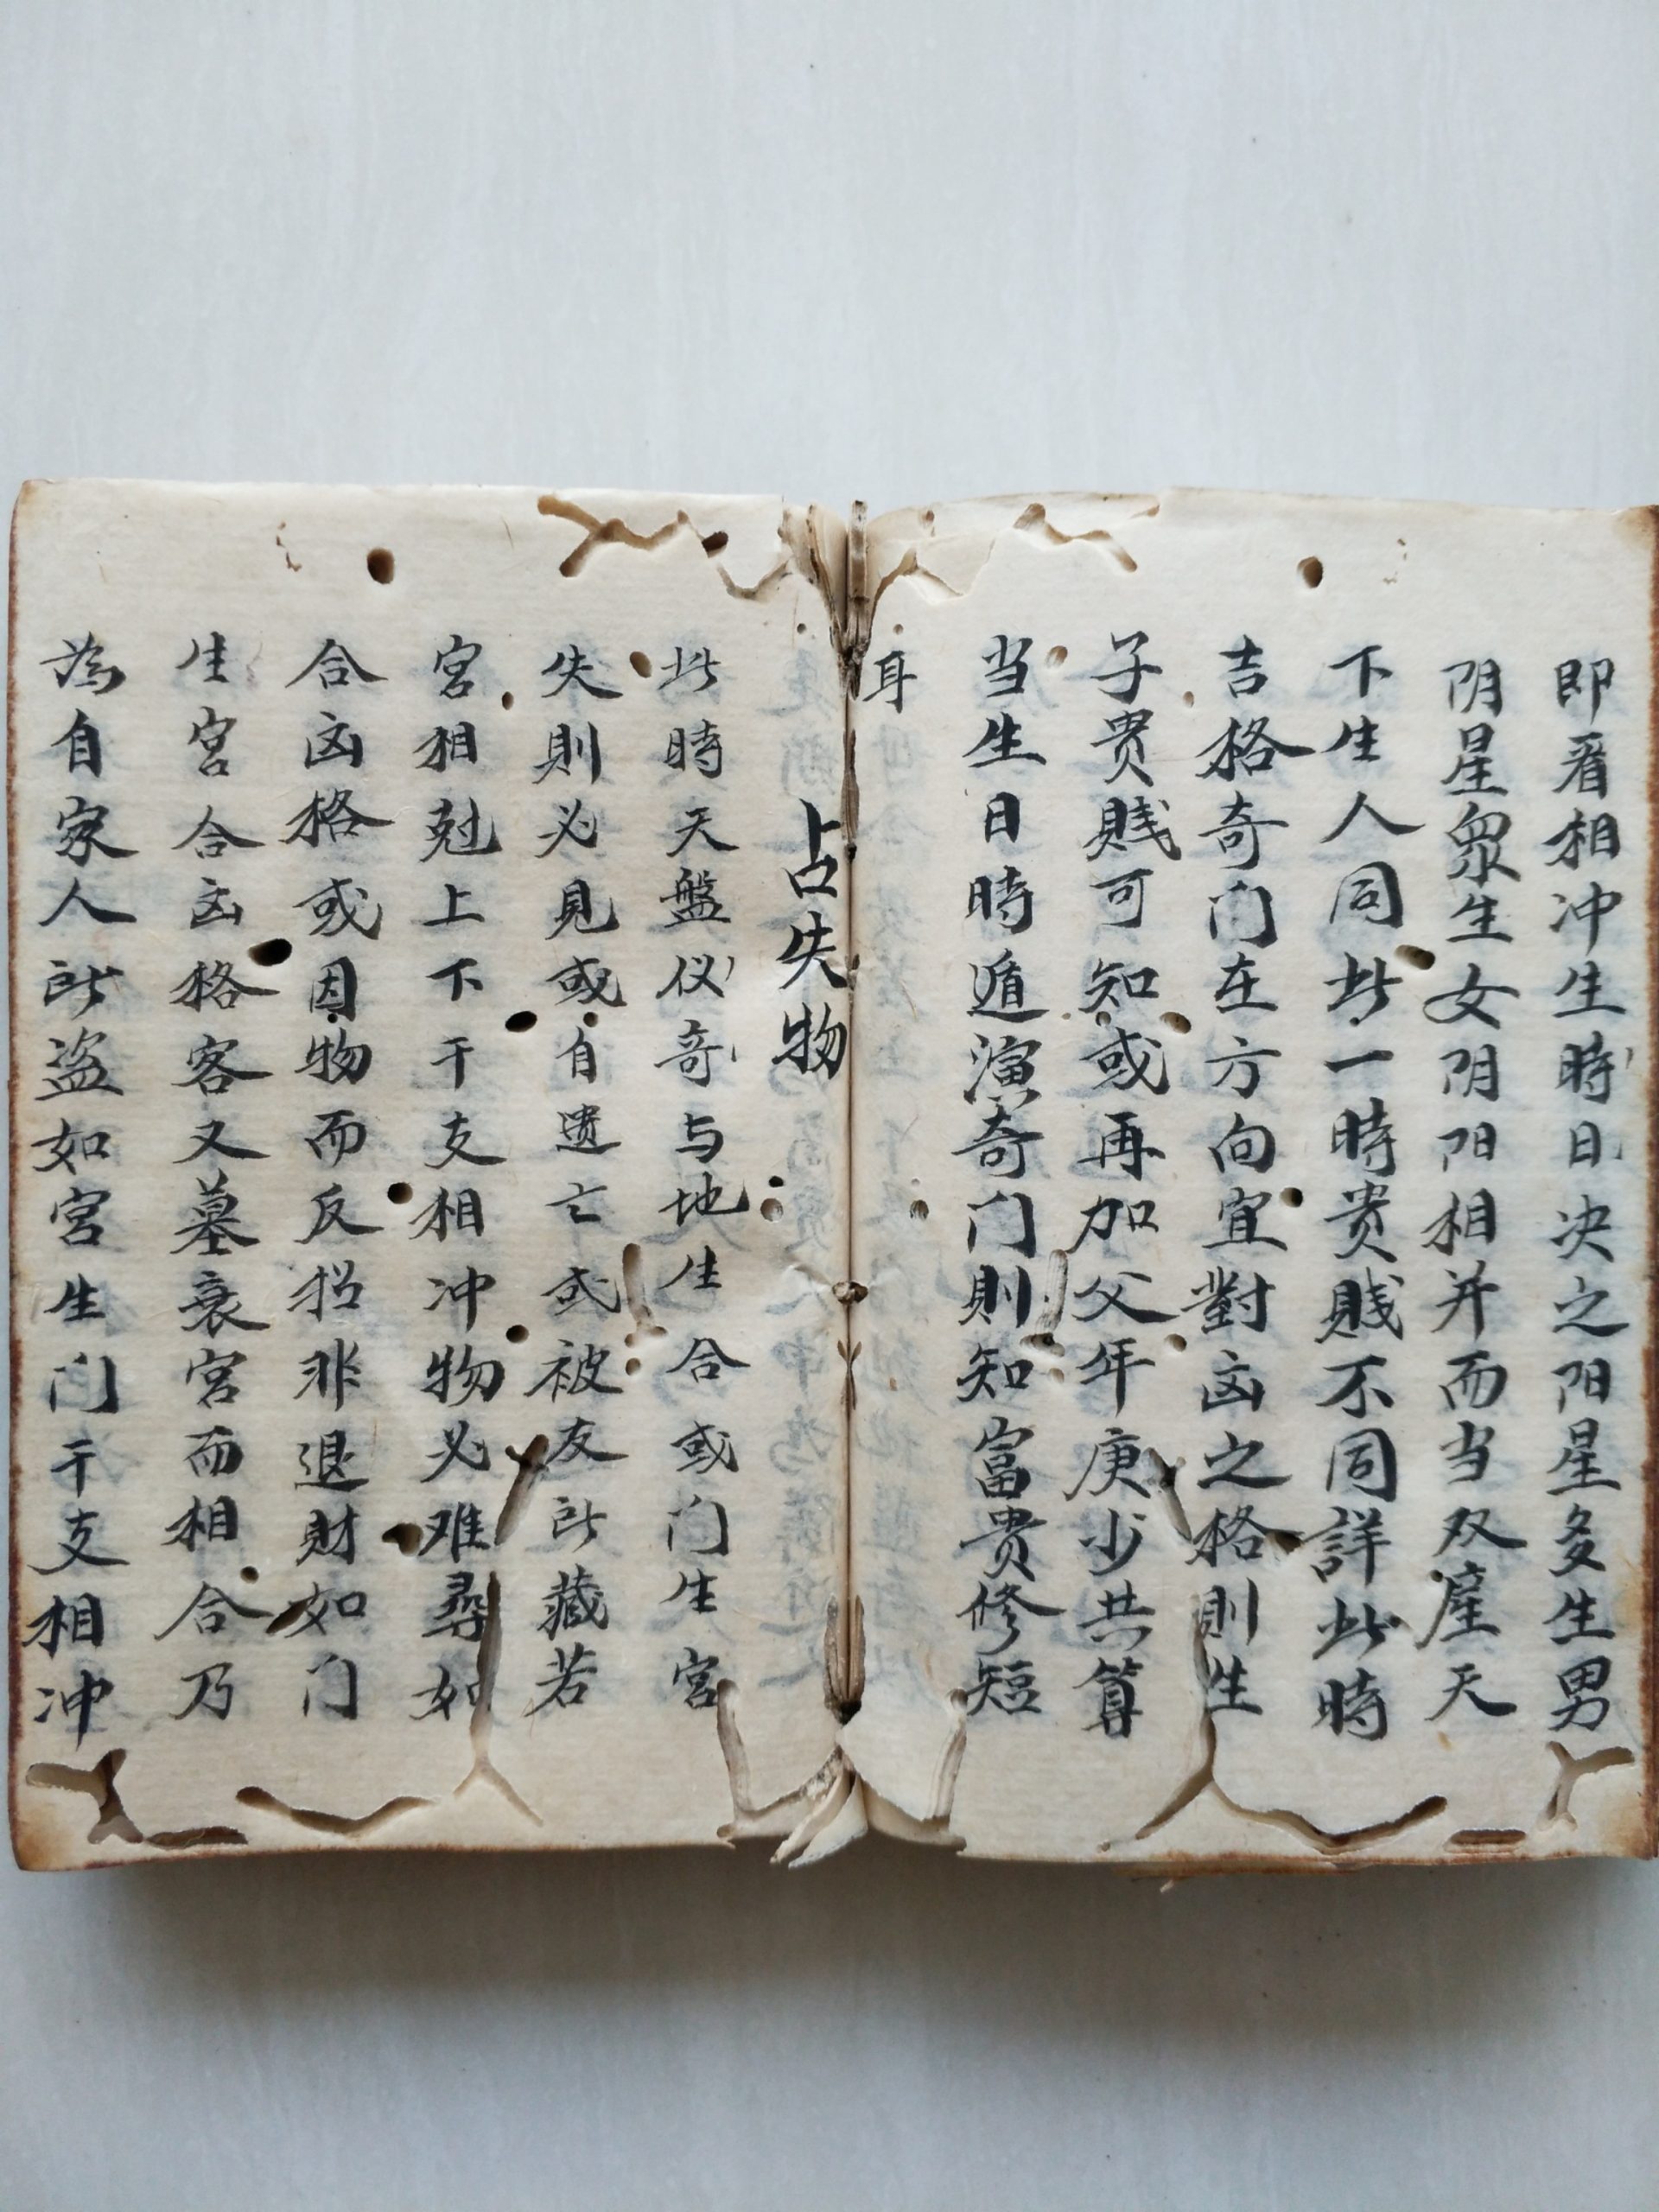 即看相冲生時日决之阳星多生男
阴星眾生女阴阳相并而当双產天
下生人同此一時贵贱不同詳此時
吉格奇门在方向宜對凶之格則生
子贵賎可知或再加父年庚少共算
当生日時遁演奇门則知富贵修短
耳
占失物
此時天盤仪奇与地生合或门生宫
失則必見或自遗亡或被友所藏若
宫相尅上下干支相冲物必难尋如
合凶格或因物而反招非退財如门
生宫合凶格客又墓衰宫而相合乃
為自家人所盗如宫生门干支相冲